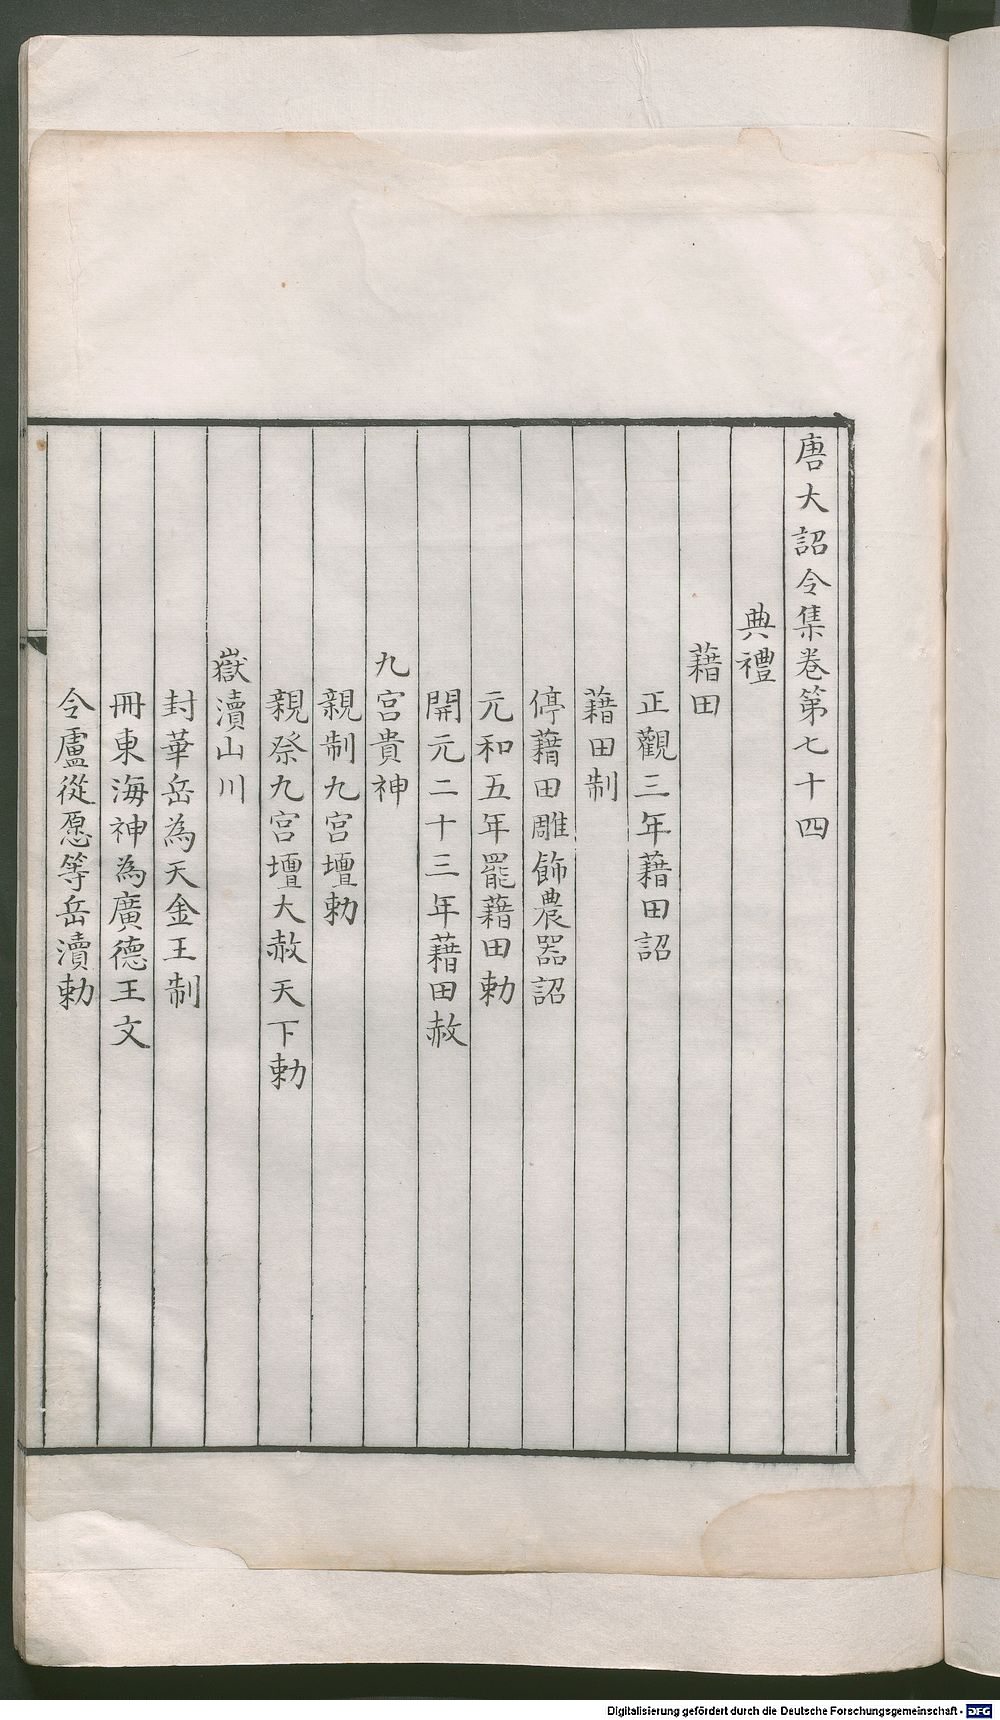 唐大詔令集卷第七十四
典禮
藉田
正觀三年藉田詔
藉田制
停藉田雕飾農器詔
元和五年罷藉田勅
開元二十三年藉田赦
九宮貴神
親制九宮壇勅
親祭九宮壇大赦天下勅
嶽瀆山川
封華岳為天金王制
冊東海神為廣德王文
令盧從愿等岳瀆勅
Digitalisierung gefördert durch die Deutsche Forschungsgemeinschaft - DFG